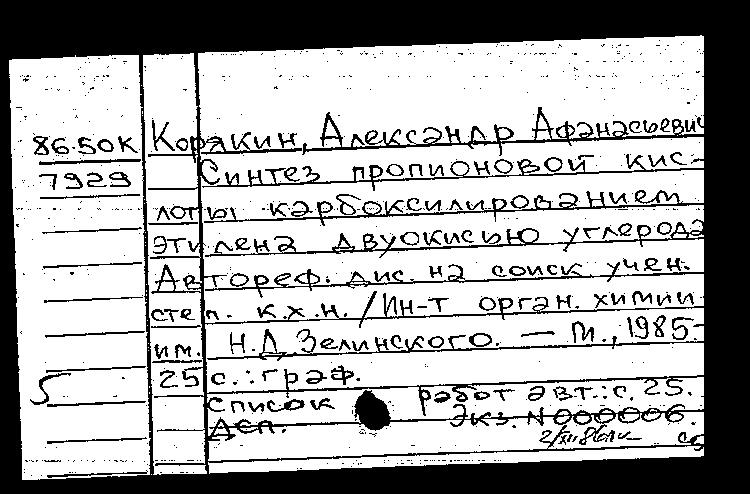 86.50К Корякин, Александр Афанасьевич
7929 Синтез пропионовой кис-
лоты карбоксилированием
этилена двуокисью углерода
Автореф. дис. на соиск учен.
степ. к.х.н. / Ин-т орган. химии
им. Н.Д. Зелинского. — М., 1985-
5 25 с.: граф.
Список работ авт.: с. 25.
Деп. Экз. N 000006.